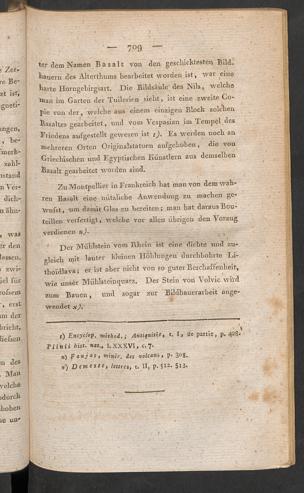 — 709 —
ter dem Namen Basalt von den geschicktesten Bild-
hauern des Alterthums bearbeitet worden ist, war eine
harte Horngebirgsart. Die Bildsäule des Nils, welche
man im Garten der Tuilerien sieht, ist eine zweite Co-
pie von der, welche aus einem einzigen Block solchen
Basaltes gearbeitet, und vom Vespasian im Tempel des
Friedens aufgestellt gewesen ist t). Es werden noch an
mehreren Orten Originalstatuen aufgehoben, die von
Griechischen und Egyptischen Künstlern aus demselben
Basalt gearbeitet worden sind.
Zu Montpellier in Frankreich hat man von dem wah-
ren Basalt eine nützliche Anwendung zu machen ge-
wußt, um damit Glas zu bereiten; man hat daraus Bou-
teillen verfertigt, welche vor allen übrigen den Vorzug
verdienen u).
Der Mühlstein vom Rhein ist eine dichte und zu-
gleich mit lauter kleinen Höhlungen durchbohrte Li-
thoidlava; er ist aber nicht von so guter Beschaffenheit,
wie unser Mühlsteinquarz. Der Stein von Volvic wird
zum Bauen, und sogar zur Bildhauerarbeit ange-
wendet x).
t) Encyclop. méthod.; Antiquités, t. I, 2e partie, p. 408.
Plinii hist. nat., l. XXXVI, c. 7.
u) Faujas, minér. des volcans, p. 308.
x) Demeste, lettres, t. II, p. 512. 513.